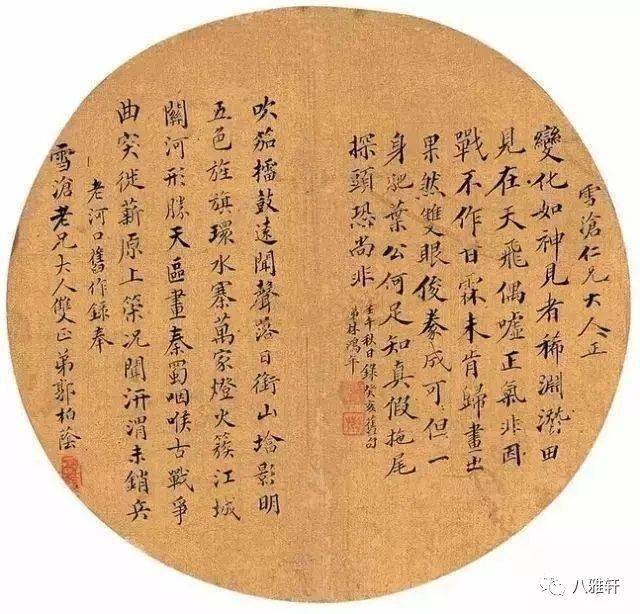 雪滄仁兄大人正
變化如神見者稀淵潛田
見在天飛偶噓正氣非因
戰不作甘霖未肯歸畫出
果然雙眼俊豢成可但一
身肥葉公何足知真假拖尾
探頭恐尚非
壬午秋日錄癸亥舊句
弟林鴻年
吹笳擂鼓遠聞聲落日銜山墖影明
五色旌旗環水寨萬家燈火簇江城
關河形勝天區畫秦蜀咽喉古戰爭
曲突徙薪原上策況聞汧渭未銷兵
老河口舊作錄奉
雪滄老兄大人雙正弟郭柏蔭
八雅轩